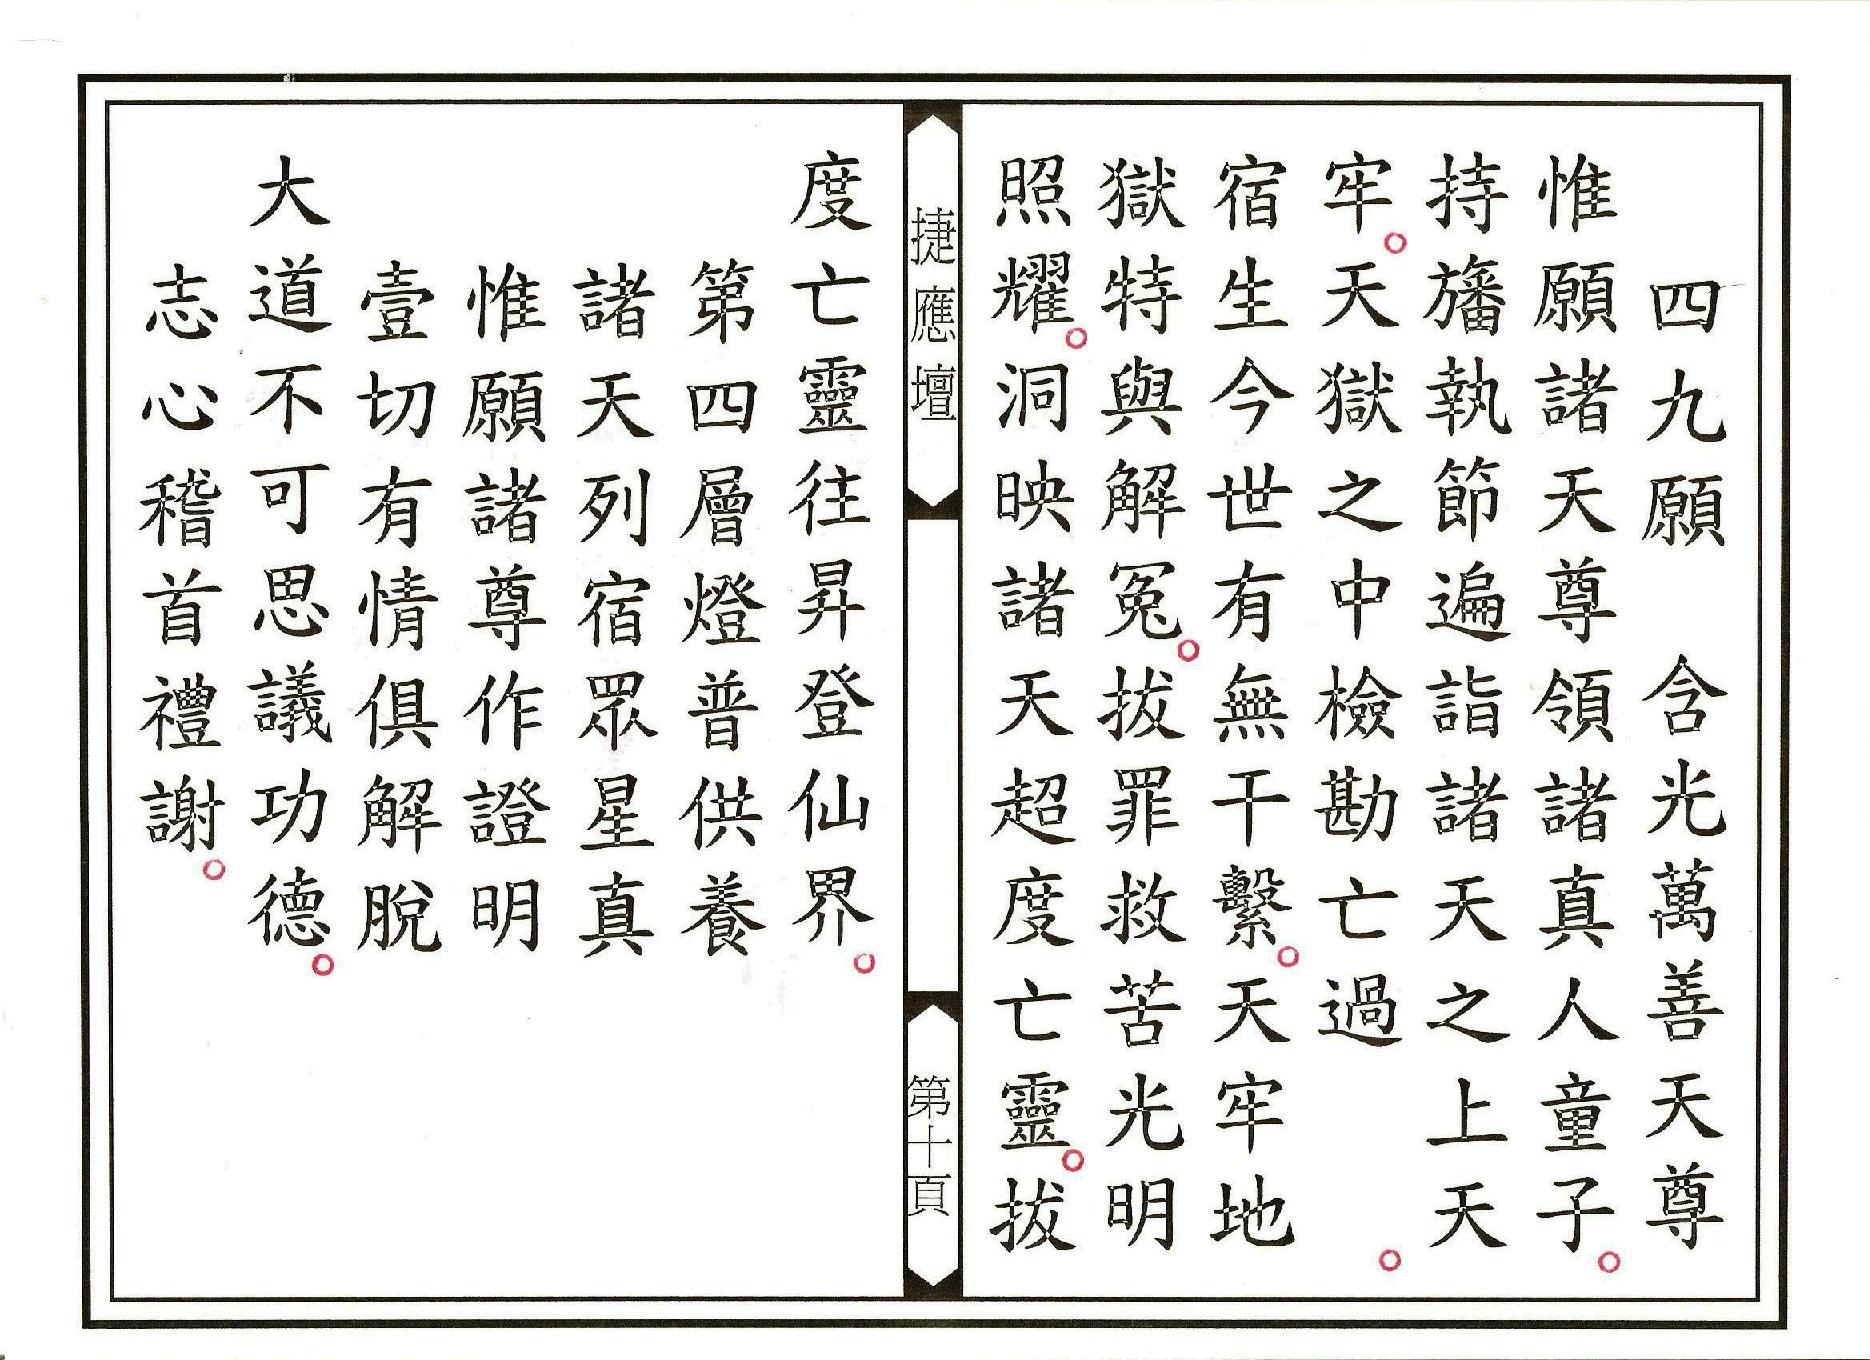 四九願　含光萬善天尊
惟願諸天尊領諸真人童子。
持旛執節遍詣諸天之上天
牢。天獄之中檢勘亡過　。
宿生今世有無干繫。天牢地
獄特與解冤。拔罪救苦光明
照耀。洞映諸天超度亡靈。拔
捷應壇
第十頁
度亡靈往昇登仙界。
第四層燈普供養
諸天列宿眾星真
惟願諸尊作證明
壹切有情俱解脫
大道不可思議功德。
志心稽首禮謝。